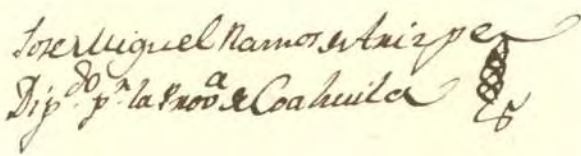 Jose Miguel Ramos de Arizpe
Dip.do p.r la Prov.a de Coahuila